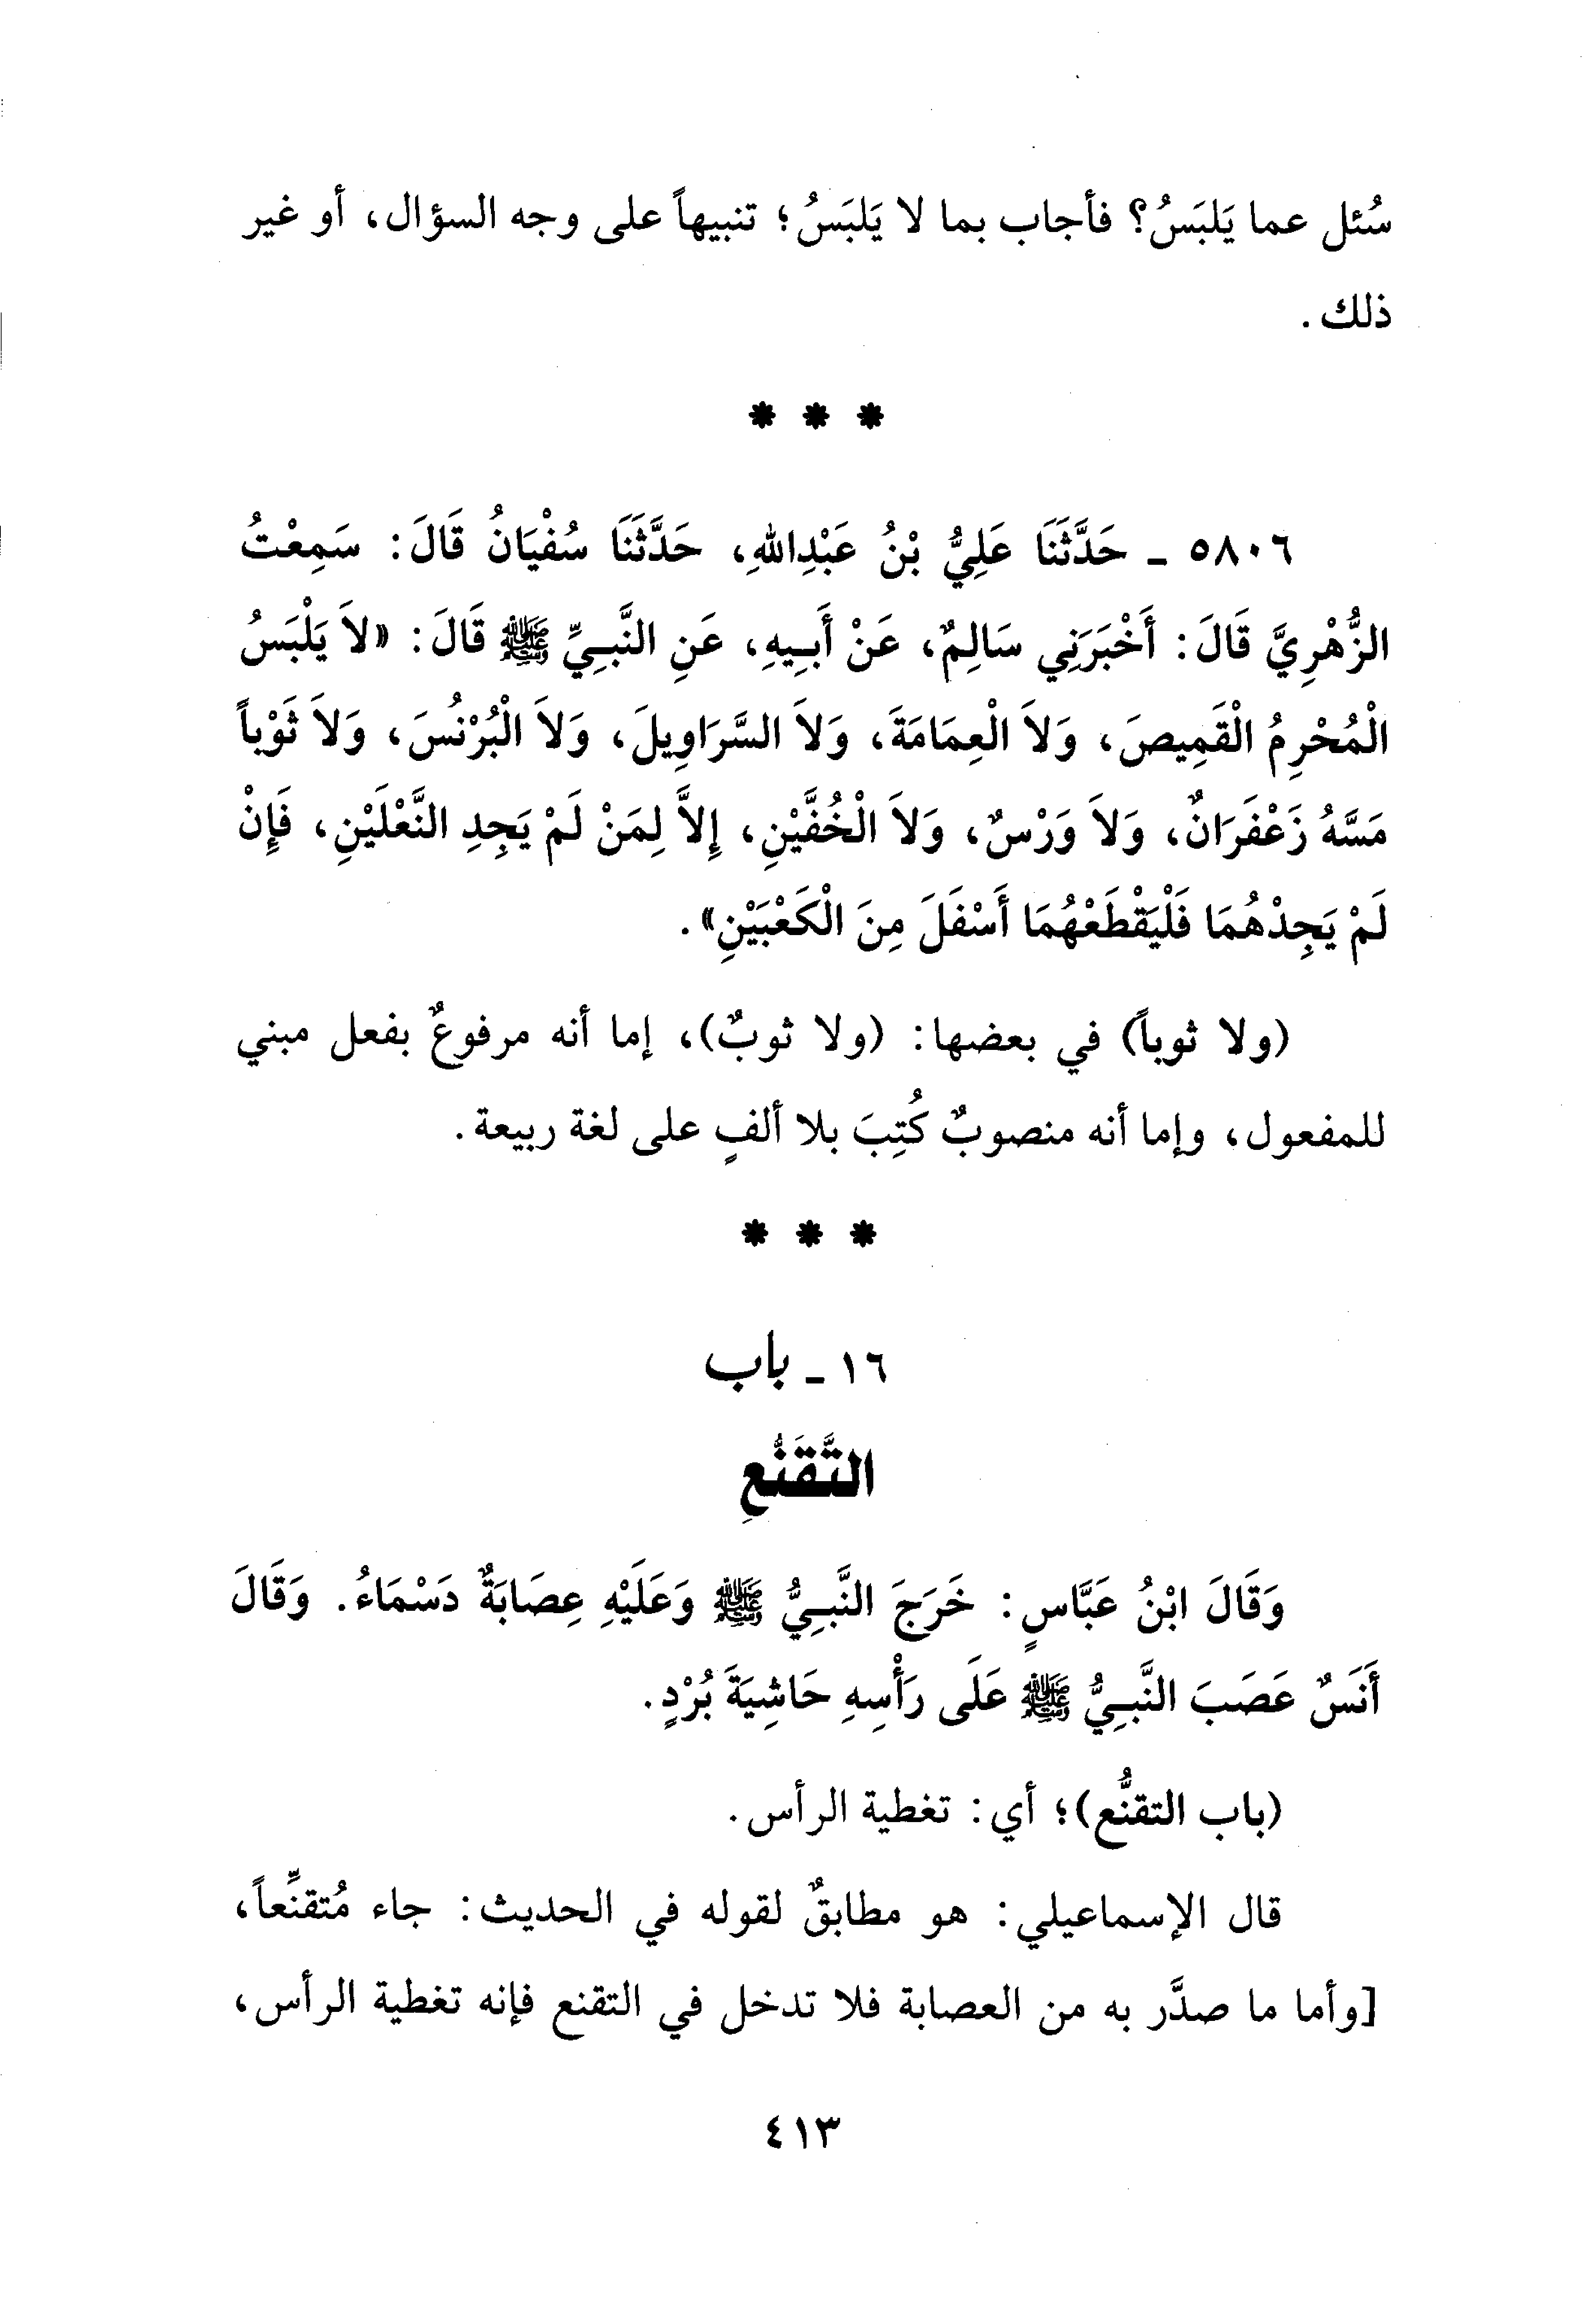 سُئل عما يَلبَسُ؟ فأجاب بما لا يَلبَسُ؛ تنبيهاً على وجه السؤال، أو غير
ذلك.
* * *
٥٨٠٦ - حَدَّثَنَا عَلِيُّ بْنُ عَبْدِاللهِ، حَدَّثَنَا سُفْيَانُ قَالَ: سَمِعْتُ
الزُّهْرِيَّ قَالَ: أَخْبَرَنِي سَالِمٌ، عَنْ أَبِيهِ، عَنِ النَّبِيِّ ﷺ قَالَ: «لاَ يَلْبَسُ
الْمُحْرِمُ الْقَمِيصَ، وَلاَ الْعِمَامَةَ، وَلاَ السَّرَاوِيلَ، وَلاَ الْبُرْنُسَ، وَلاَ ثَوْباً
مَسَّهُ زَعْفَرَانٌ، وَلاَ وَرْسٌ، وَلاَ الْخُفَّيْنِ، إِلاَّ لِمَنْ لَمْ يَجِدِ النَّعْلَيْنِ، فَإِنْ
لَمْ يَجِدْهُمَا فَلْيَقْطَعْهُمَا أَسْفَلَ مِنَ الْكَعْبَيْنِ».
(ولا ثوباً) في بعضها: (ولا ثوبٌ)، إما أنه مرفوعٌ بفعل مبني
للمفعول، وإما أنه منصوبٌ كُتِبَ بلا ألفٍ على لغة ربيعة.
* * *
١٦ - باب
التَّقَنُّعِ
وَقَالَ ابْنُ عَبَّاسٍ: خَرَجَ النَّبِيُّ ﷺ وَعَلَيْهِ عِصَابَةٌ دَسْمَاءُ. وَقَالَ
أَنَسٌ عَصَبَ النَّبِيُّ ﷺ عَلَى رَأْسِهِ حَاشِيَةَ بُرْدٍ.
(باب التقنُّع)؛ أي: تغطية الرأس.
قال الإسماعيلي: هو مطابقٌ لقوله في الحديث: جاء مُتقنِّعاً،
[وأما ما صدَّر به من العصابة فلا تدخل في التقنع فإنه تغطية الرأس،
٤١٣